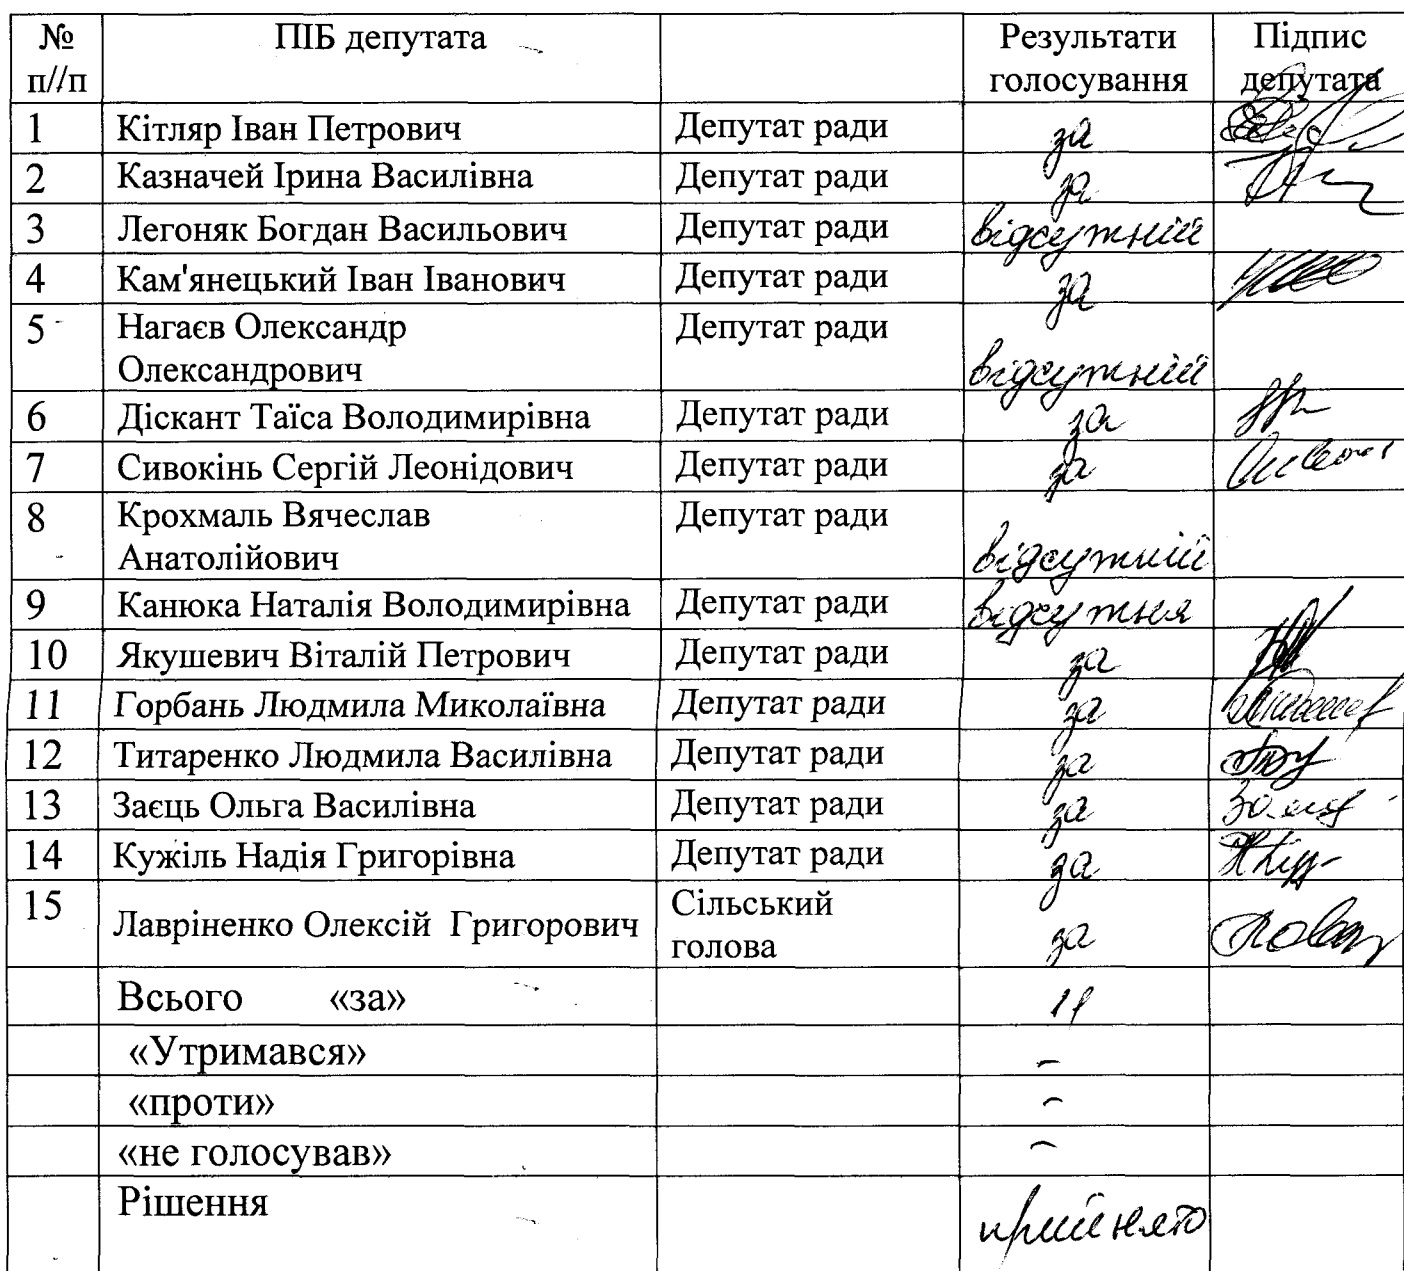 № п//п ПІБ депутата Результати голосування Підпис депутата
1 Кітляр Іван Петрович Депутат ради за
2 Казначей Ірина Василівна Депутат ради за
3 Легоняк Богдан Васильович Депутат ради відсутній
4 Кам'янецький Іван Іванович Депутат ради за
5 Нагаєв Олександр Олександрович Депутат ради відсутній
6 Діскант Таїса Володимирівна Депутат ради за
7 Сивокінь Сергій Леонідович Депутат ради за
8 Крохмаль Вячеслав Анатолійович Депутат ради відсутній
9 Канюка Наталія Володимирівна Депутат ради відсутня
10 Якушевич Віталій Петрович Депутат ради за
11 Горбань Людмила Миколаївна Депутат ради за
12 Титаренко Людмила Василівна Депутат ради за
13 Заєць Ольга Василівна Депутат ради за
14 Кужіль Надія Григорівна Депутат ради за
15 Лавріненко Олексій Григорович Сільський голова за
Всього «за» 11
«Утримався» -
«проти» -
«не голосував» -
Рішення прийнято